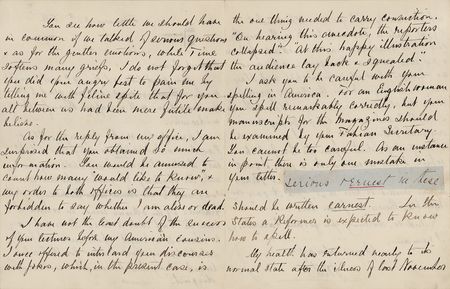 You see how little we should have
in common if we talked of serious questions
& as for the gentler emotions, while Time
softens many griefs, I do not forget that
you did your angry best to pain me by
telling me with feline spite that for you
all between us had been mere futile make
believe.
As for the reply from my office, I am
surprised that you obtained so much
information. You would be amused to
count how many "would like to know", &
my orders to both offices is that they are
forbidden to say whether I am alive or dead.
I have not the least doubt of the success
of your lectures before my American cousins.
I once offered to interlard your discourses
with jokes, which, in the present case, is
the one thing needed to carry conviction.
"On hearing this anecdote, the reporters
collapsed". "At this happy illustration
the audience lay back & squealed."
I ask you to be careful with your
spelling in America. For an English woman
you spell remarkably correctly, but your
manuscripts for the magazines should
be examined by your Fabian Secretary.
You cannot be too careful. As an instance
in point there is only one mistake in
your letter. serious earnest in these
should be written earnest. In the
States a Reformer is expected to know
how to spell.
My health has returned nearly to its
normal state after the illness of last November